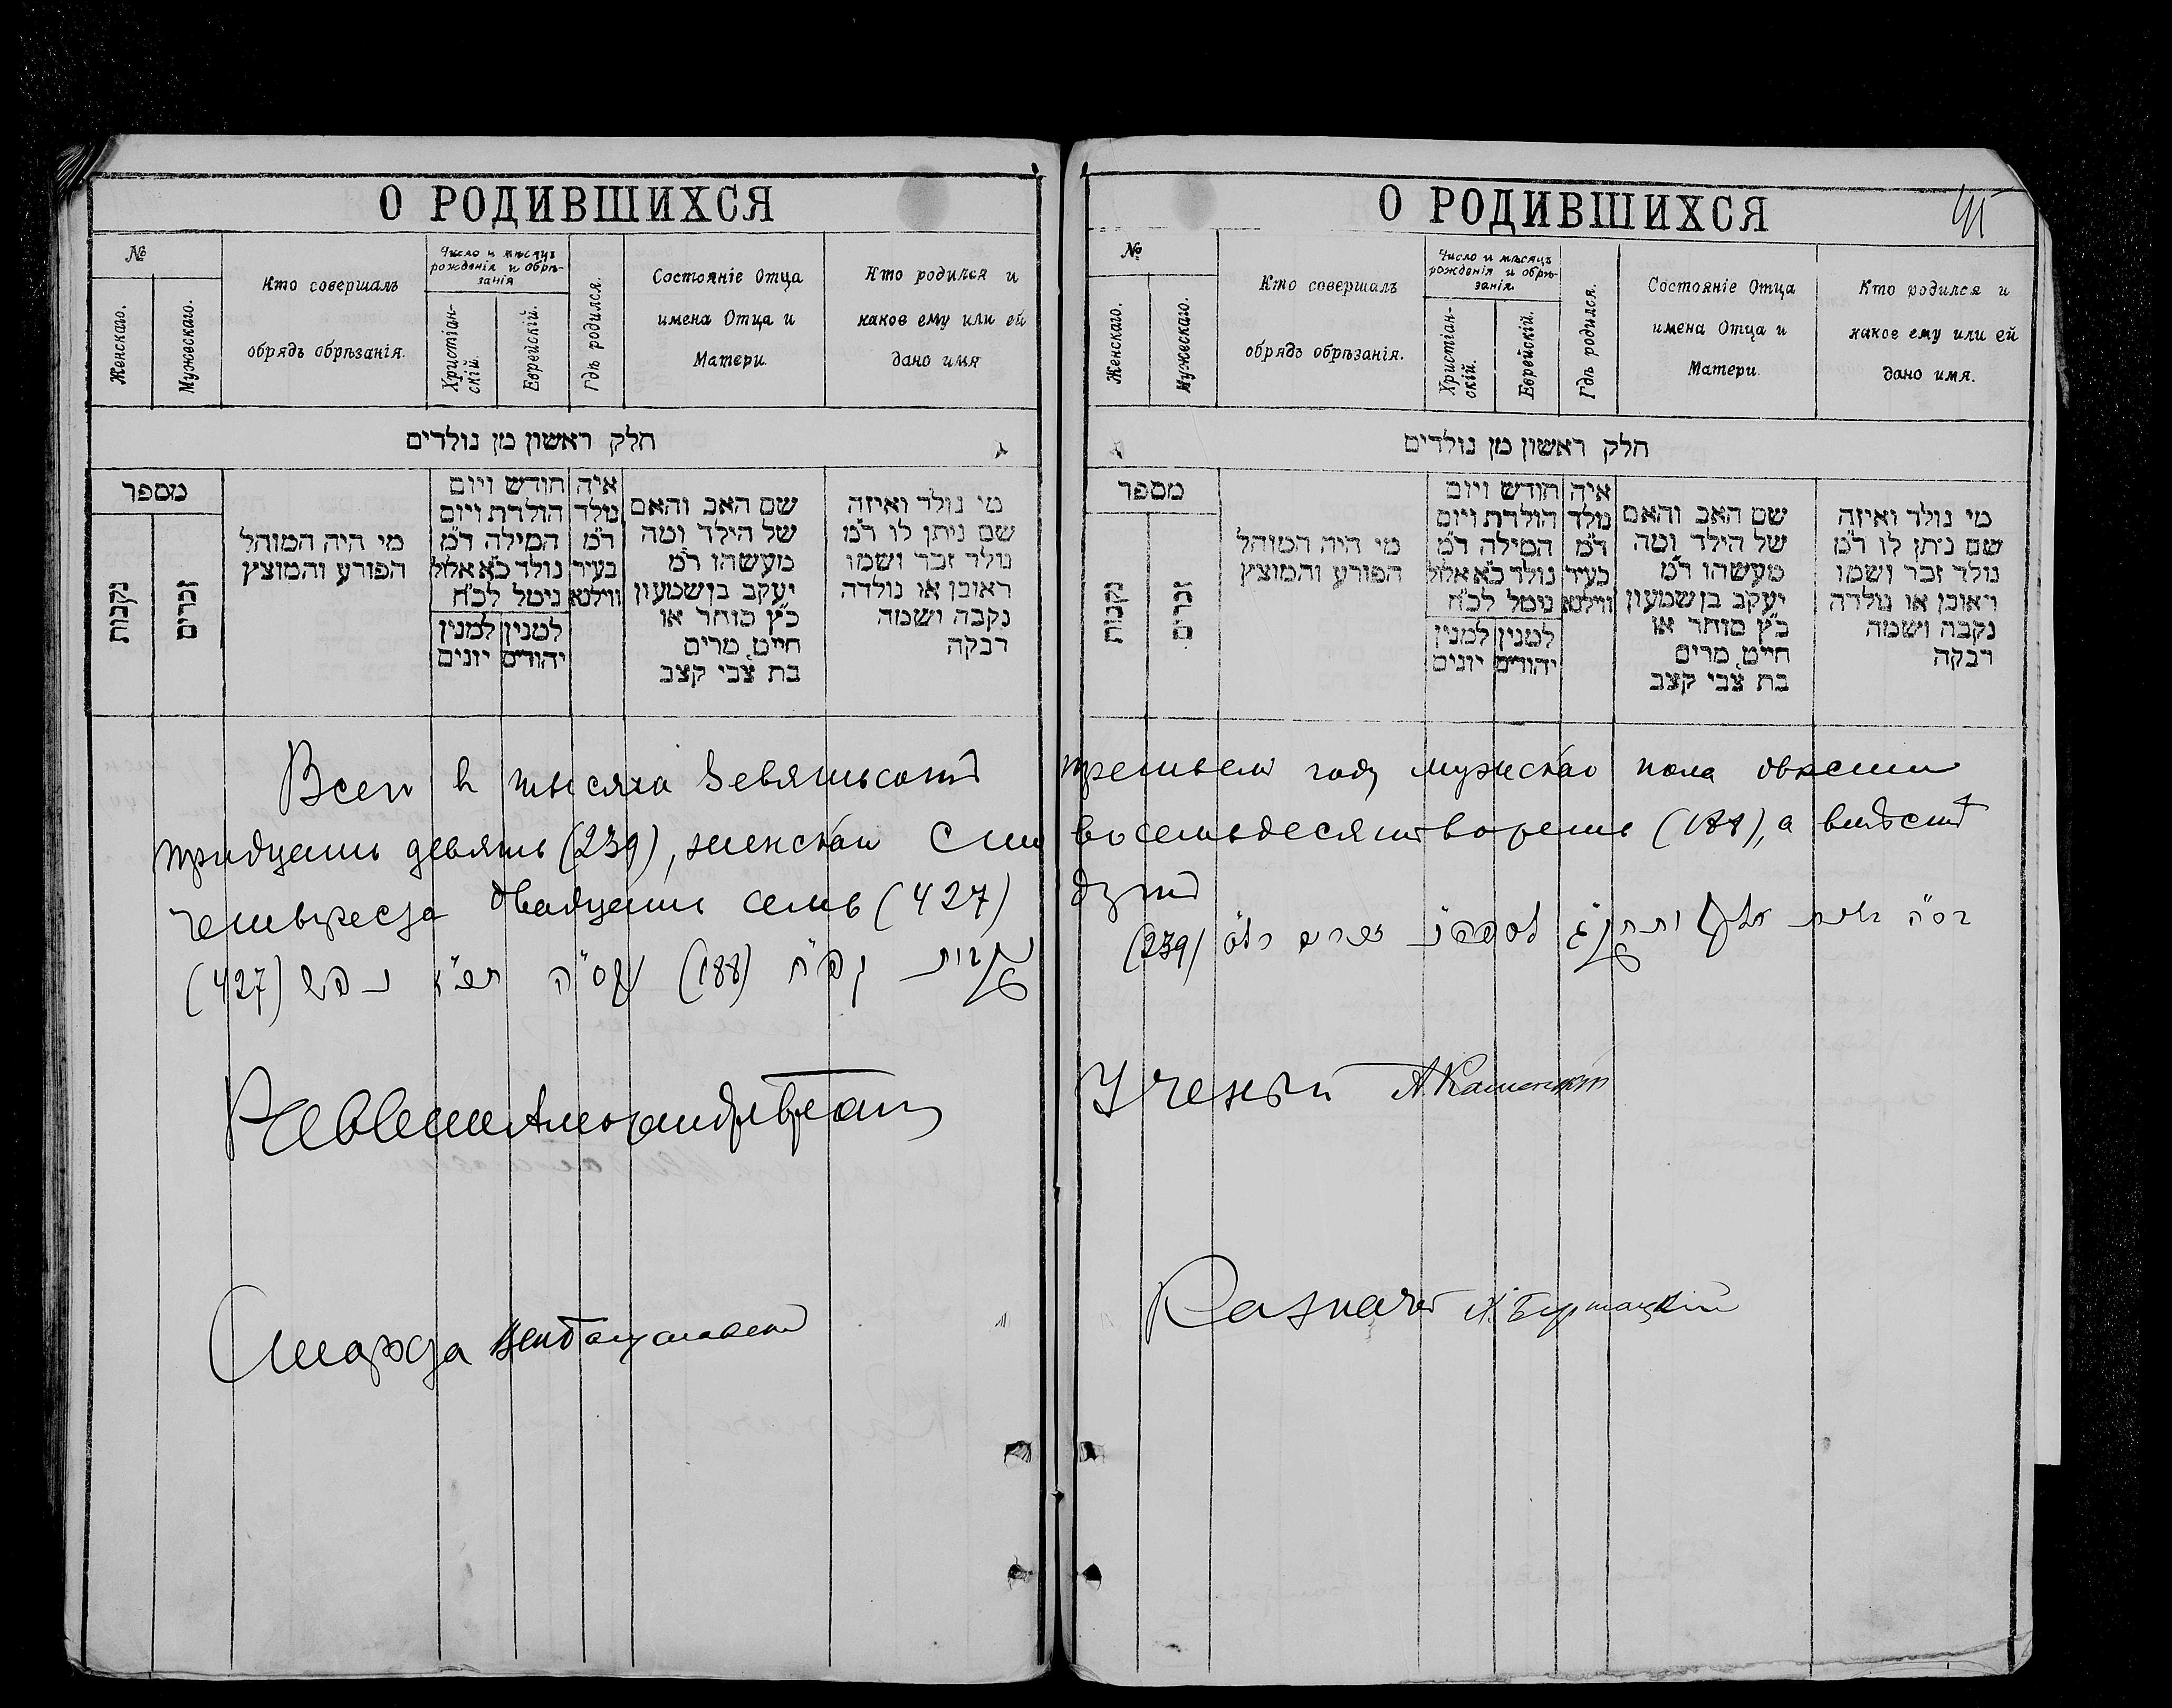 О РОДИВШИХСЯ
№
Женскаго.
Мужескаго.
Кто совершалъ
обрядъ обрѣзанія.
Число и мѣсяцъ
рожденія и обрѣ-
занія
Христіан-
скій.
Еврейскій.
Гдѣ родился.
Состояніе Отца
имена Отца и
Матери.
Кто родился и
какое ему или ей
дано имя
חלק ראשון מן נולדים
מספר
נקבות
זכרים
מי היה המוהל
הפורע והמוצץ
חודש ויום
הולדת ויום
המילה ד״מ
נולד כ״א אלול
ניטל לכ״ח
למנין יהודים
למנין יונים
איה
נולד
ד״מ
בעיר
ווילנא
שם האב והאם
של הילד ומה
מעשהו ד״מ
יעקב בן שמעון
כ״ץ סוחר או
חייט, מרים
בת צבי קצב
מי נולד ואיזה
שם ניתן לו ד״מ
נולד זכר ושמו
ראובן או נולדה
נקבה ושמה
רבקה
О РОДИВШИХСЯ
№
Женскаго.
Мужескаго.
Кто совершалъ
обрядъ обрѣзанія.
Число и мѣсяцъ
рожденія и обрѣ-
занія.
Христіан-
скій.
Еврейскій.
Гдѣ родился.
Состояніе Отца
имена Отца и
Матери.
Кто родился и
какое ему или ей
дано имя.
חלק ראשון מן נולדים
מספר
נקבות
זכרים
מי היה המוהל
הפורע והמוצץ
חודש ויום
הולדת ויום
המילה ד״מ
נולד כ״א אלול
ניטל לכ״ח
למנין יהודים
למנין יונים
איה
נולד
ד״מ
בעיר
ווילנא
שם האב והאם
של הילד ומה
מעשהו ד״מ
יעקב בן שמעון
כ״ץ סוחר או
חייט, מרים
בת צבי קצב
מי נולד ואיזה
שם ניתן לו ד״מ
נולד זכר ושמו
ראובן או נולדה
נקבה ושמה
רבקה
Всего в тысяча девятьсотъ третьемъ году мужскаго пола двѣсти
тридцать девять (239), женскаго сто восемьдесятъ восемь (188), а вмѣстѣ
четыреста двадцать семь (427) душъ
למספרם זכרים רל״ט (239)
נקבות קפ״ח (188) סה תכ״ז נפש (427)
Раввинъ
Ученый А. Каменецкій
Староста
Казначей